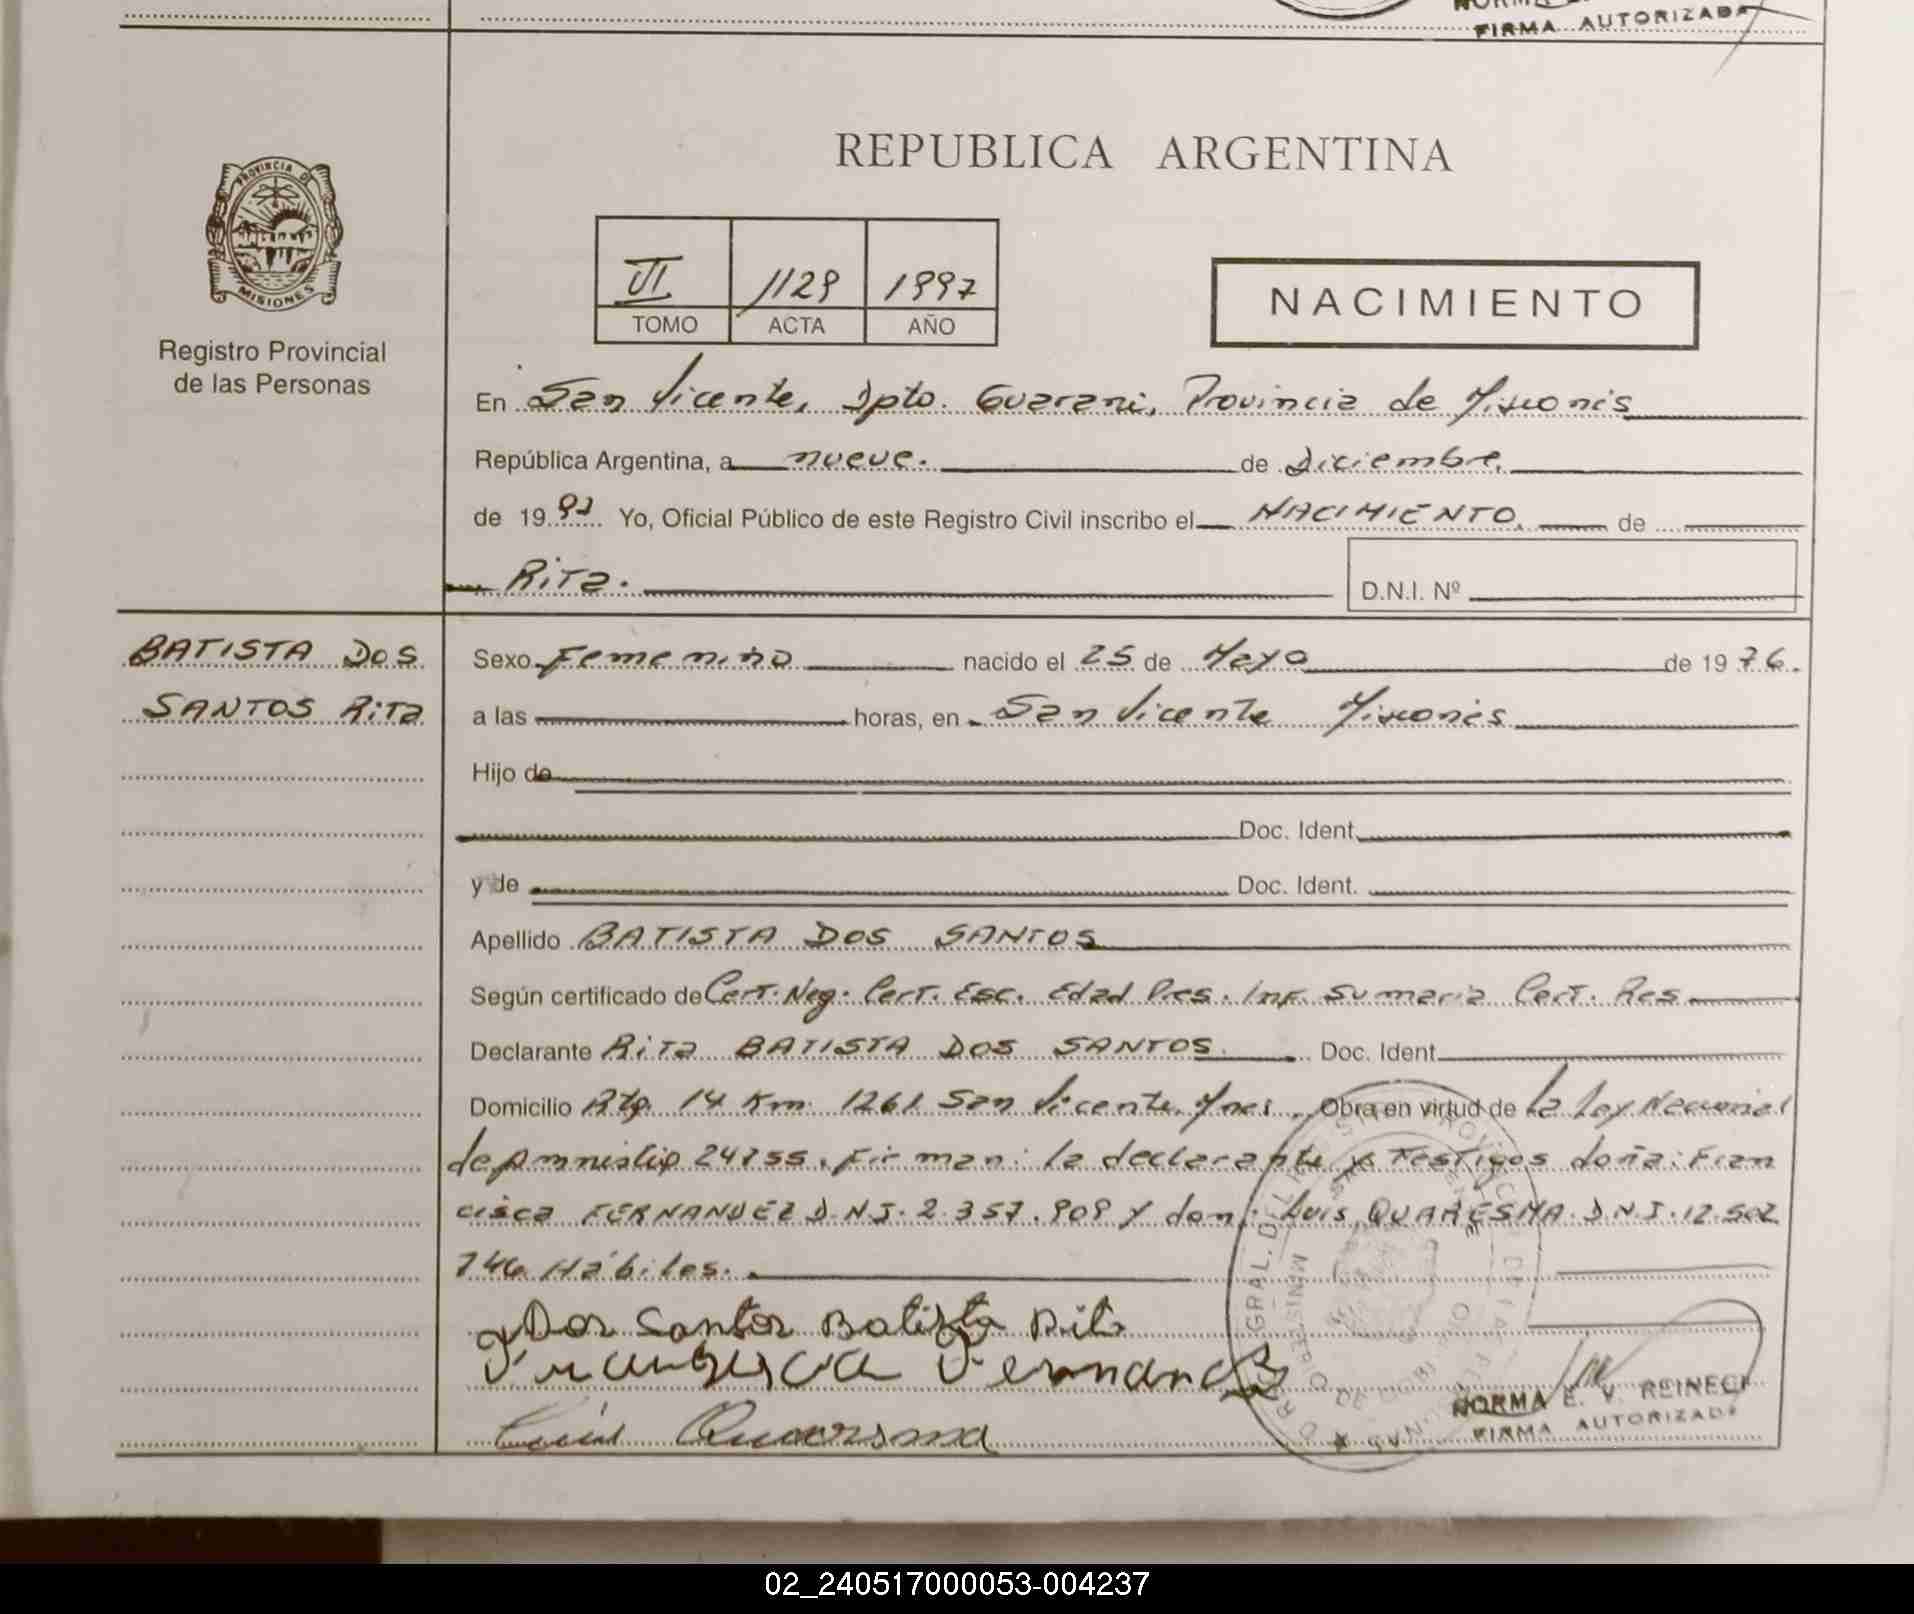 NORMA
FIRMA AUTORIZADA
REPUBLICA ARGENTINA
PROVINCIA DE
MISIONES
Registro Provincial
de las Personas
VI 1129 1997
TOMO ACTA AÑO
NACIMIENTO
En San Vicente, Dpto. Guarani, Provincia de Misiones
República Argentina, a nueve. de Diciembre
de 1997 Yo, Oficial Público de este Registro Civil inscribo el NACIMIENTO de
Rita.
D.N.I. Nº
BATISTA DOS
SANTOS Rita
Sexo Femenino nacido el 25 de Mayo de 1976.
a las horas, en San Vicente Misiones
Hijo de
Doc. Ident.
y de Doc. Ident.
Apellido BATISTA DOS SANTOS
Según certificado de Cert. Neg. Cert. Esc. Edad Pres. Inf. Sumaria Cert. Res
Declarante Rita BATISTA DOS SANTOS. Doc. Ident.
Domicilio Rta. 14 Km 1261 San Vicente, Mnes. Obra en virtud de La Ley Nacional
de Amnistia 24755. Firman: la declarante y Testigos doña: Fran
cisca FERNANDEZ D.N.I. 2.357.909 y don: Luis QUARESMA D.N.I. 12.502
746 Hábiles.
Dos Santos Batista Rita
Francisca Fernandez
Luis Quaresma
NORMA E. V. REINECK
FIRMA AUTORIZADA
02_240517000053-004237